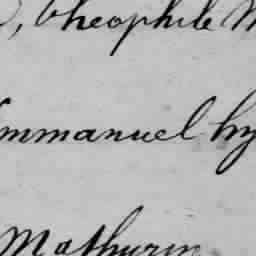 , Théophile M
Emmanuel hy
Mathurin